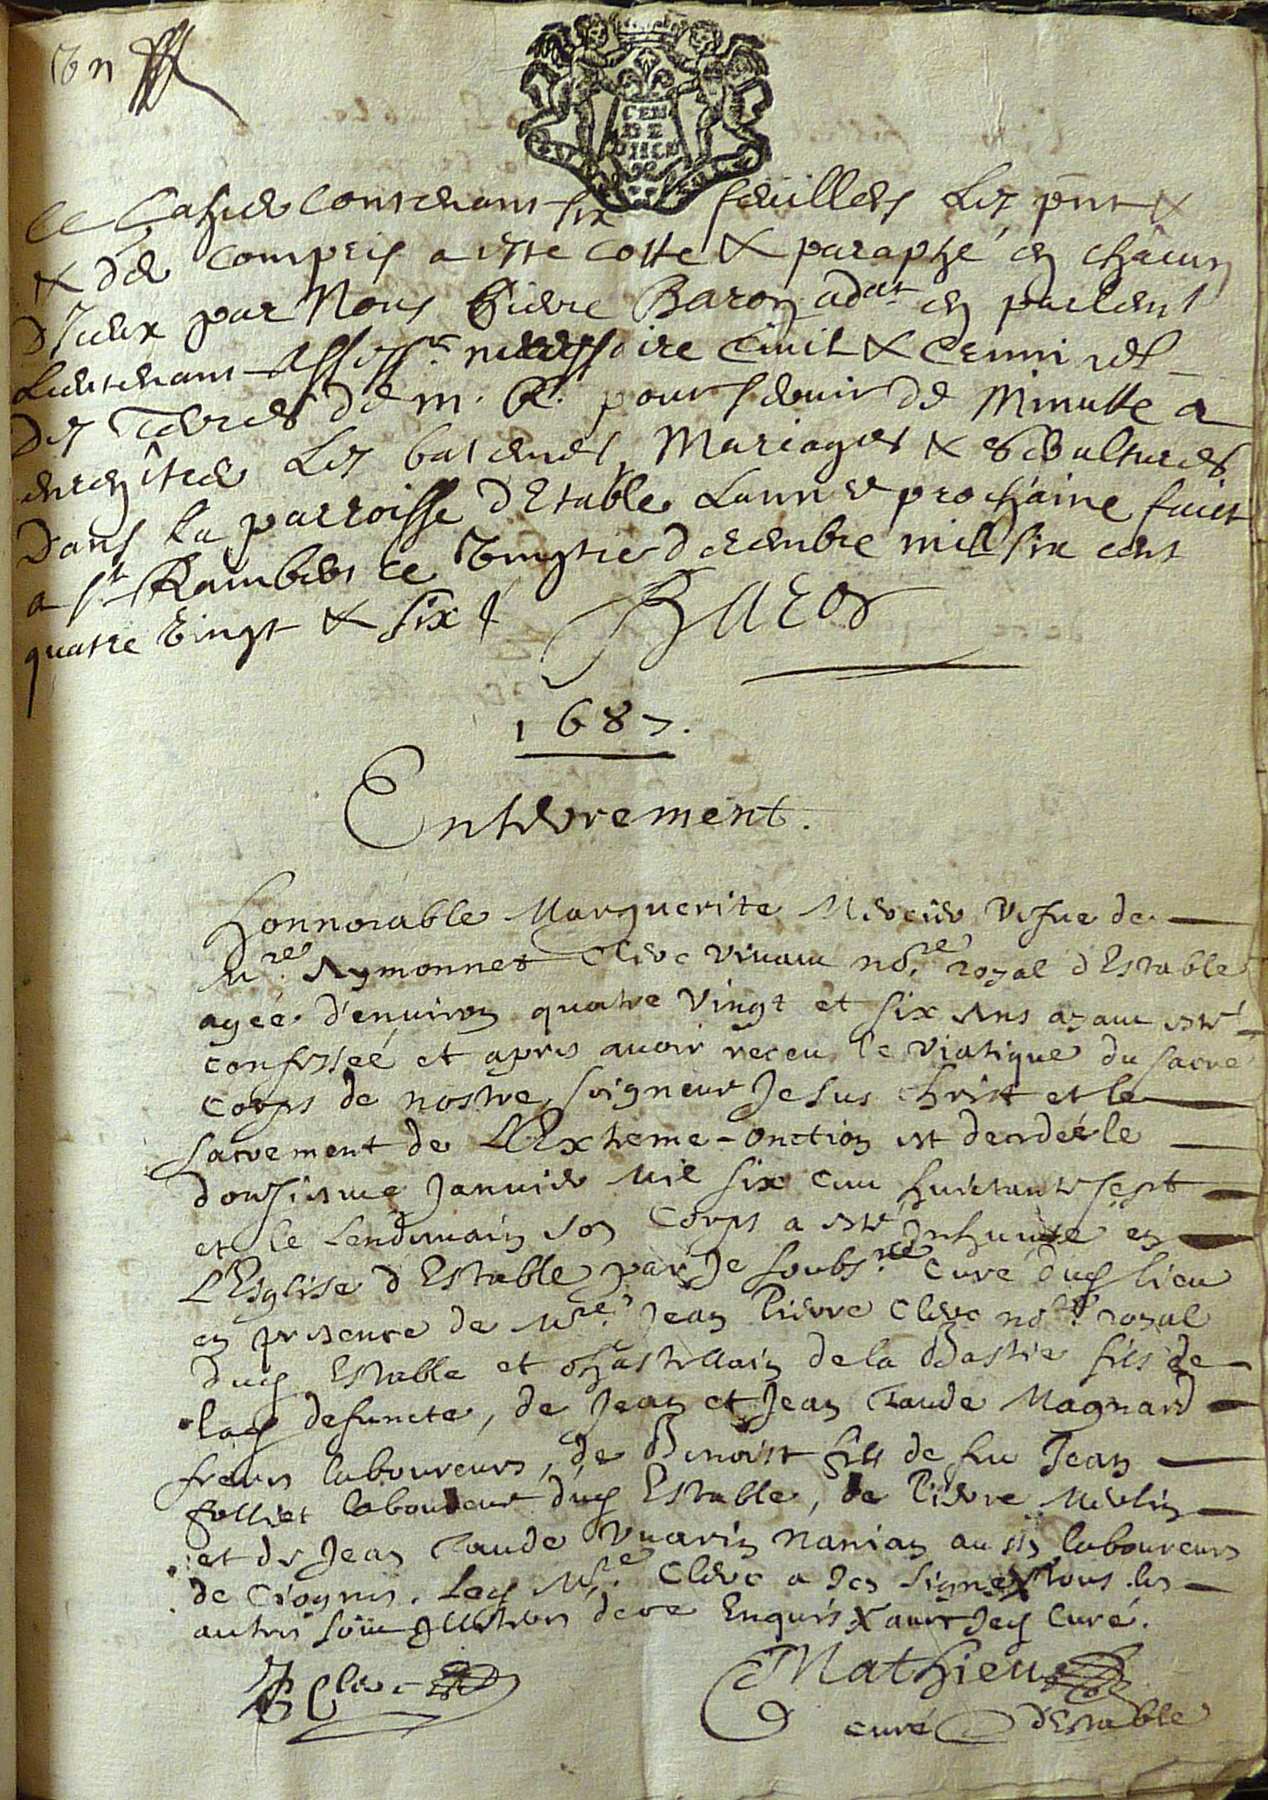 Vn
GEN
DE
Ce Cahier Contenant six feuillets Les pnt &
& der Compris a esté Cotté & paraphé en châcun
d'Iceux par Nous Pierre Baron adat en parlement
Lieutenant Assessr Civil & Criminel
Des Terres de m. R. pour servir de Minutte a
enregîtrer Les batemes, Mariages & sepultures
Dans la parroisse d'Etable Lannee prochaine fait
a St Rambert ce Vingtie decembre mil six cent
quatre Vingt & six
Baron
1687.
Enterrement.
Honnorable Marguerite Mercier Vefue de
Mre. Aymonnet Clerc viuant nore. royal d'Estable
agée d'enuiron quatre Vingt et six Ans ayant esté
confessée et apres auoir receu le viatique du sacré
Corps de nostre seigneur Jesus Christ et le
sacrement de L'Extreme-onction est decedée le
dousiesme Januier Mil six cent huictante sept
et le lendemain son Corps a esté Inhumé en
L'Esglise d'Estable par Je soubsné Curé dud lieu
en presence de Mre. Jean Pierre Clerc nore. royal
Dud Estable et Chastellain de la Bastie fils de
lad defuncte, de Jean et Jean Claude Magnard
freres laboureurs, de Benoist fils de feu Jean
Folliet laboureur dud Estable, de Pierre Merlin
et de Jean Claude Vuarin aussi laboureurs
de Ciognis. Led Mre. Clerc a Icy signé X tous les
autres de ce Enquis X auec Led Curé.
JP Clerc
Mathieu
curé d'Estable